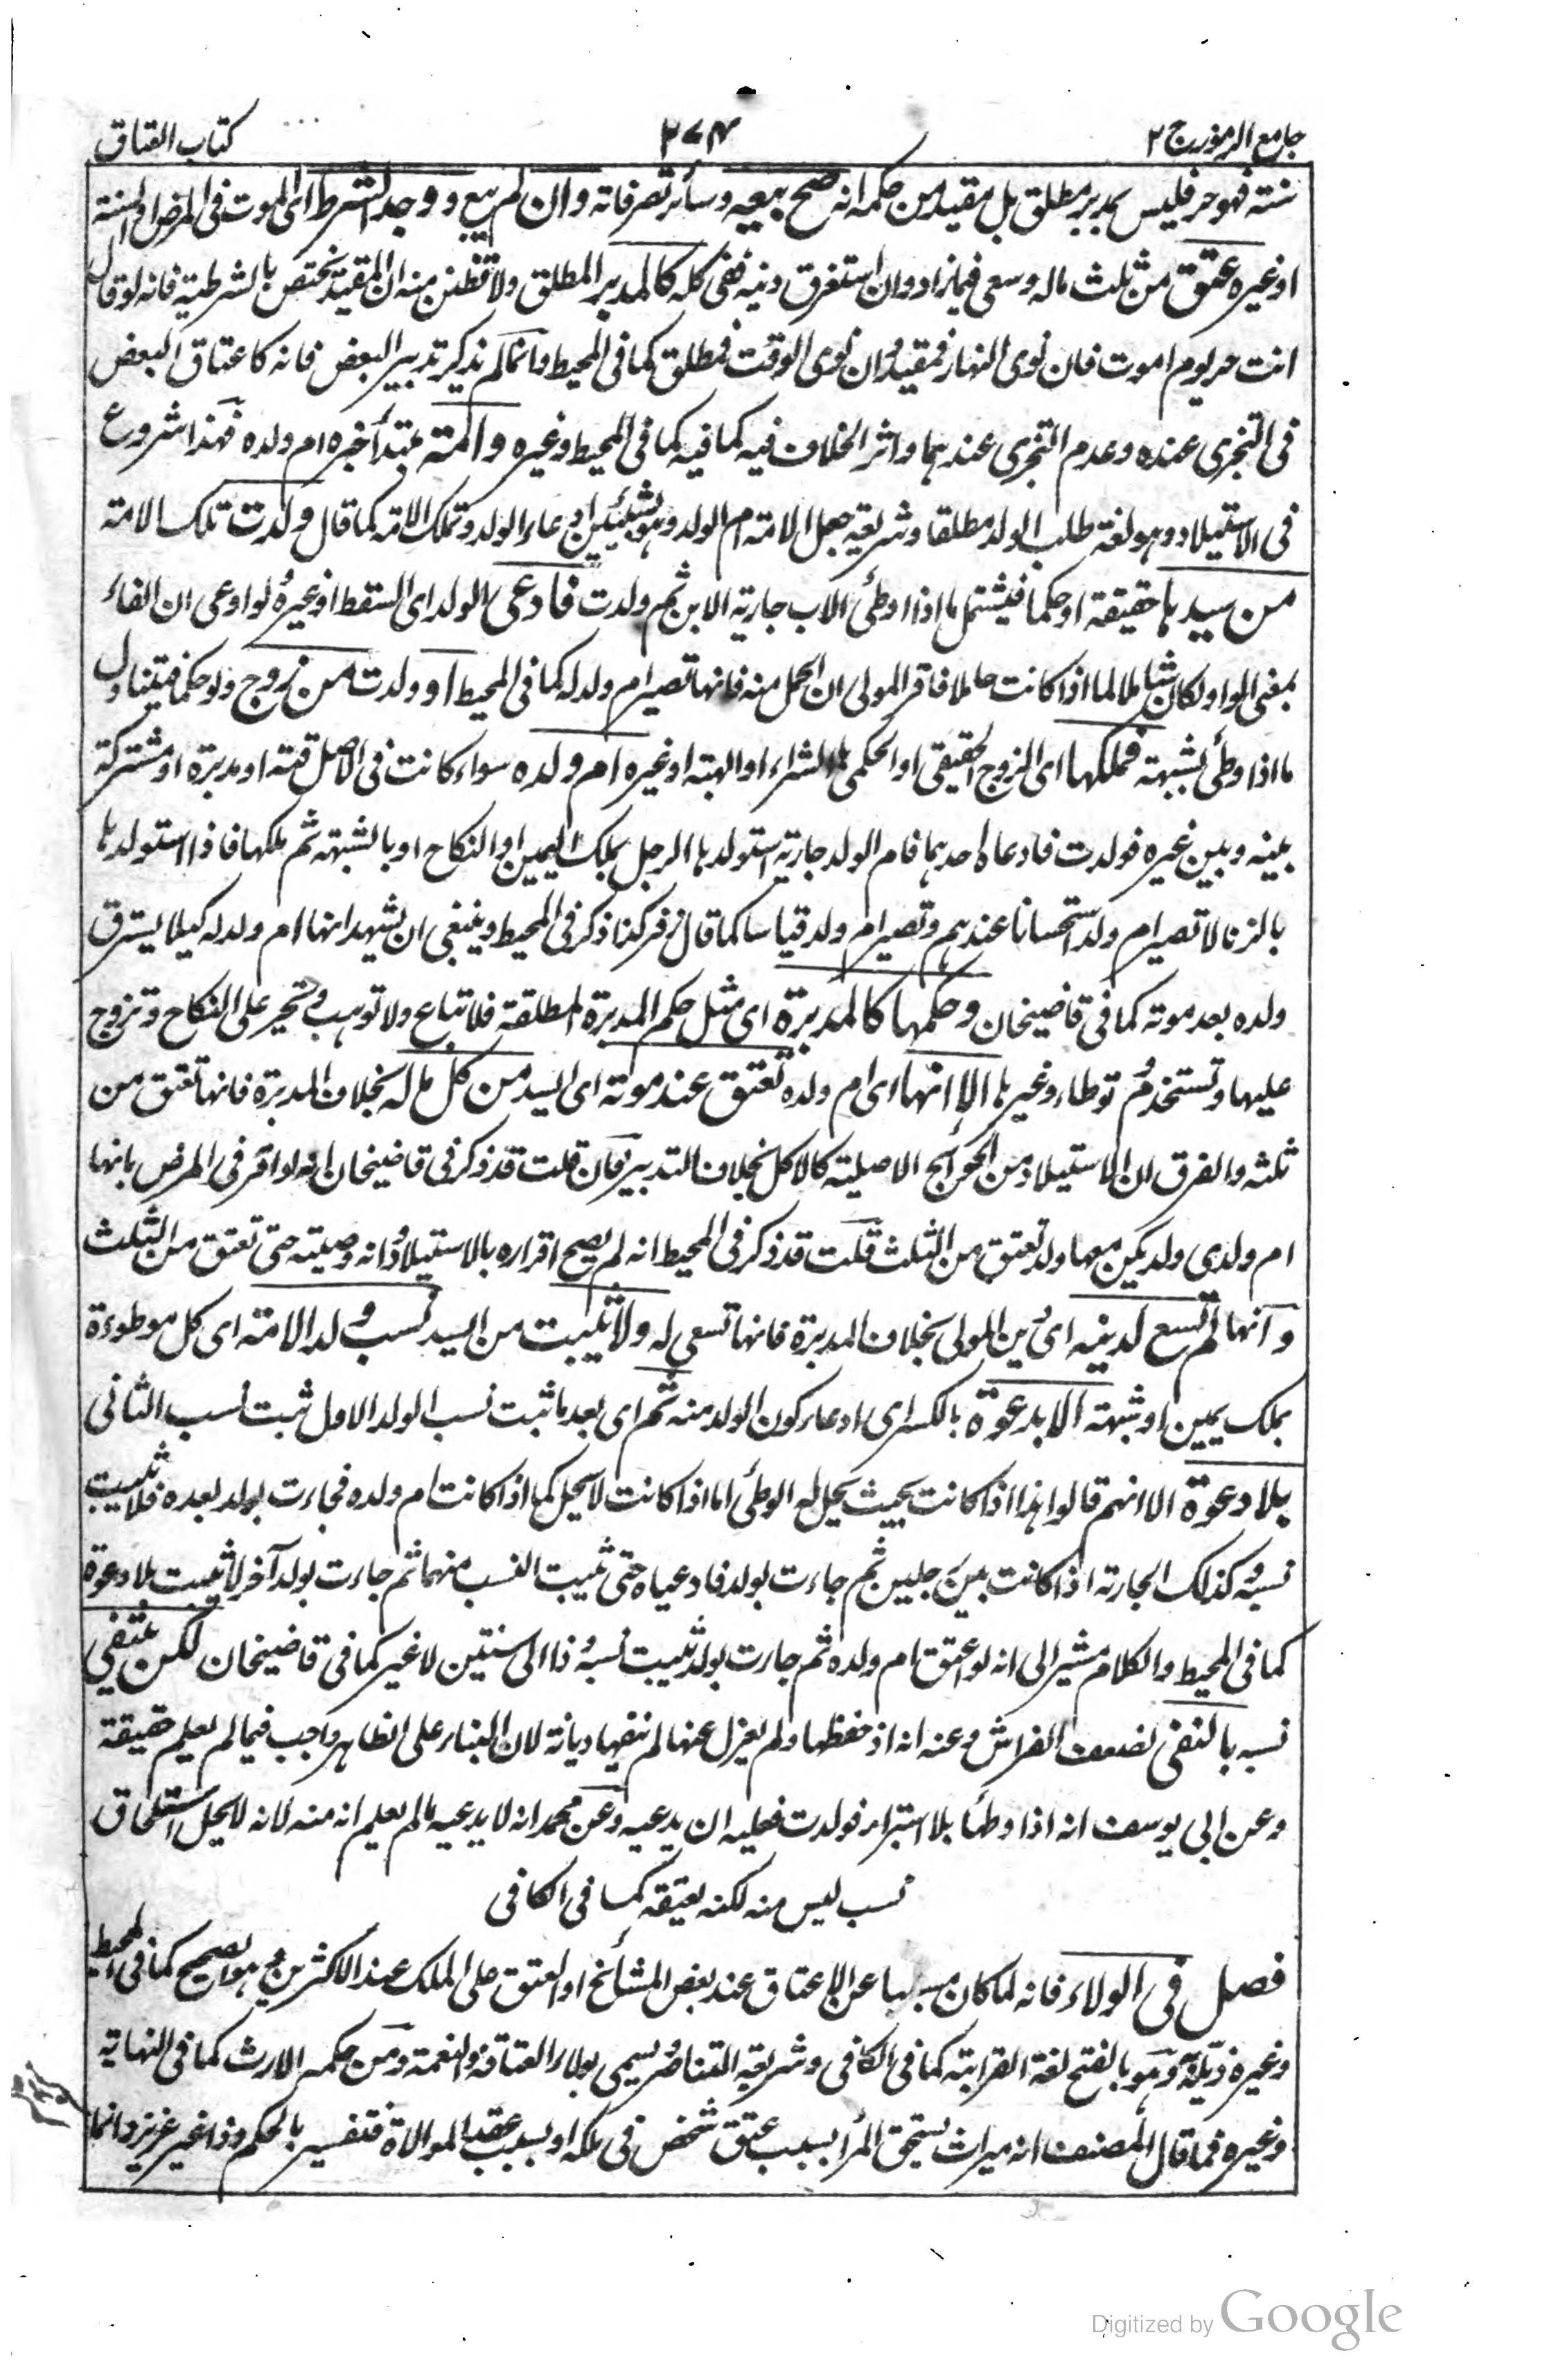 جامع الرموز ج ٢
٢٧٤
كتاب العتاق
سنته فهو حر فليس بمدبر مطلق بل مقيد من حكمه انه صح بيعه وسائر تصرفاته وان لم يبع ووجد الشرط اى الموت فى المرض او السنة
او غيره عتق من ثلث ماله وسعى فيما زاد وان استغرق دينه ففى كله كالمدبر المطلق ولا تظنن منه ان المقيد يختص بالشرطية فانه لو قال
انت حر يوم اموت فان نوى النهار فمقيد وان نوى الوقت فمطلق كما فى المحيط وانما لم يذكر تدبير البعض فانه كاعتاق البعض
فى التجزى عنده وعدم التجزى عندهما واثر الخلاف فيه كما فيه كما فى المحيط وغيره وامة مبتدأ خبره ام ولده فهذا شروع
فى الاستيلاد وهو لغة طلب الولد مطلقا وشريعة جعل الامة ام الولد وهو بشيئين ادعاء الولد وتملك الامة كما قال ولدت تلك الامة
من سيدها حقيقة او حكما فيشتمل ما اذا وطئ الاب جارية الابن ثم ولدت فادعى الولد اى السقط او غيره ولو ادعى ان الفاء
بمعنى الواو لكان شاملا لما اذا كانت حاملا فاقر المولى ان الحمل منه فانها تصير ام ولد له كما فى المحيط او ولدت من زوج ولو حكما فيتناول
ما اذا وطئ بشبهة فملكها اى الزوج الحقيقى او الحكمى بالشراء او الهبة او غيره ام ولده سواء كانت فى الاصل قنة او مدبرة او مشتركة
بينه وبين غيره فولدت فادعاه احدهما فام الولد جارية استولدها الرجل بملك اليمين او النكاح او بالشبهة ثم ملكها فاذا استولدها
بالزنا لا تصير ام ولد استحسانا عندهم وتصير ام ولد قياسا كما قال زفر كذا ذكر فى المحيط وينبغى ان يشهد انها ام ولد له كيلا يسترق
ولده بعد موته كما فى قاضيخان وحكمها كالمدبرة اى مثل حكم المدبرة المطلقة فلا تباع ولا توهب وتجبر على النكاح وتزوج
عليها وتستخدم وتوطاء وغيرها الا انها اى ام ولده تعتق عند موته اى السيد من كل ماله بخلاف المدبرة فانها تعتق من
ثلثه والفرق ان الاستيلاد من الحوائج الاصلية كالاكل بخلاف التدبير فان قلت قد ذكر فى قاضيخان انه لو اقر فى المرض بانها
ام ولدى ولم يكن معها ولد تعتق من الثلث قلت قد ذكر فى المحيط انه لم يصح اقراره بالاستيلاد وانه وصيته حتى تعتق من الثلث
وانها لم تسع لدينه اى دين المولى بخلاف المدبرة فانها تسعى له ولا يثبت من السيد نسب ولد الامة اى كل موطوءة
بملك يمين او شبهة الا بدعوة بالكسر اى ادعاء كون الولد منه ثم اى بعد ما ثبت نسب الولد الاول ثبت نسب الثانى
بلا دعوة الا انهم قالوا هذا اذا كانت بحيث يحل له الوطئ اما اذا كانت لا يحل كما اذا كانت ام ولده فجاءت بولد بعده فلا يثبت
نسبه وكذلك الجارية اذا كانت بين رجلين ثم جاءت بولد فادعياه حتى يثبت النسب منهما ثم جاءت بولد آخر لا يثبت بلا دعوة
كما فى المحيط والكلام مشير الى انه لو اعتق ام ولده ثم جاءت بولد يثبت نسبه وذا الى سنتين لا غير كما فى قاضيخان لكن ينتفى
نسبه بالنفى لضعف الفراش وعنه انه اذ حفظها ولم يعزل عنها لم ينفها ديانة لان البناء على الظاهر واجب فيما لم يعلم حقيقة
وعن ابى يوسف انه اذا وطئا بلا استبراء فولدت فعليه ان يدعيه وعن محمد انه لا يدعيه ما لم يعلم انه منه لانه لا يحل استلحاق
نسب ليس منه لكنه يعتقه كما فى الكافى
فصل فى الولاء فانه لما كان مسببا عن الاعتاق عند بعض المشائخ او العتق على الملك عند الاكثرين وهو الصحيح كما فى المحيط
وغيره ذيله وهو بالفتح لغة القرابة كما فى الكافى وشريعة التناصر يسمى بولاء العتاقة والنعمة ومن حكمه الارث كما فى النهاية
وغيره فما قال المصنف انه ميراث يستحق المرأ بسبب عتق شخص فى ملكه او بسبب عقد الموالاة فتفسير بالحكم وذا غير عزيز وانما
Digitized by Google